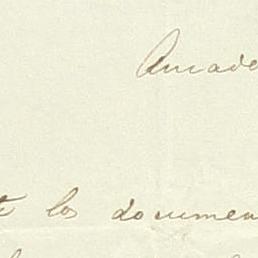 Amado
te los documen